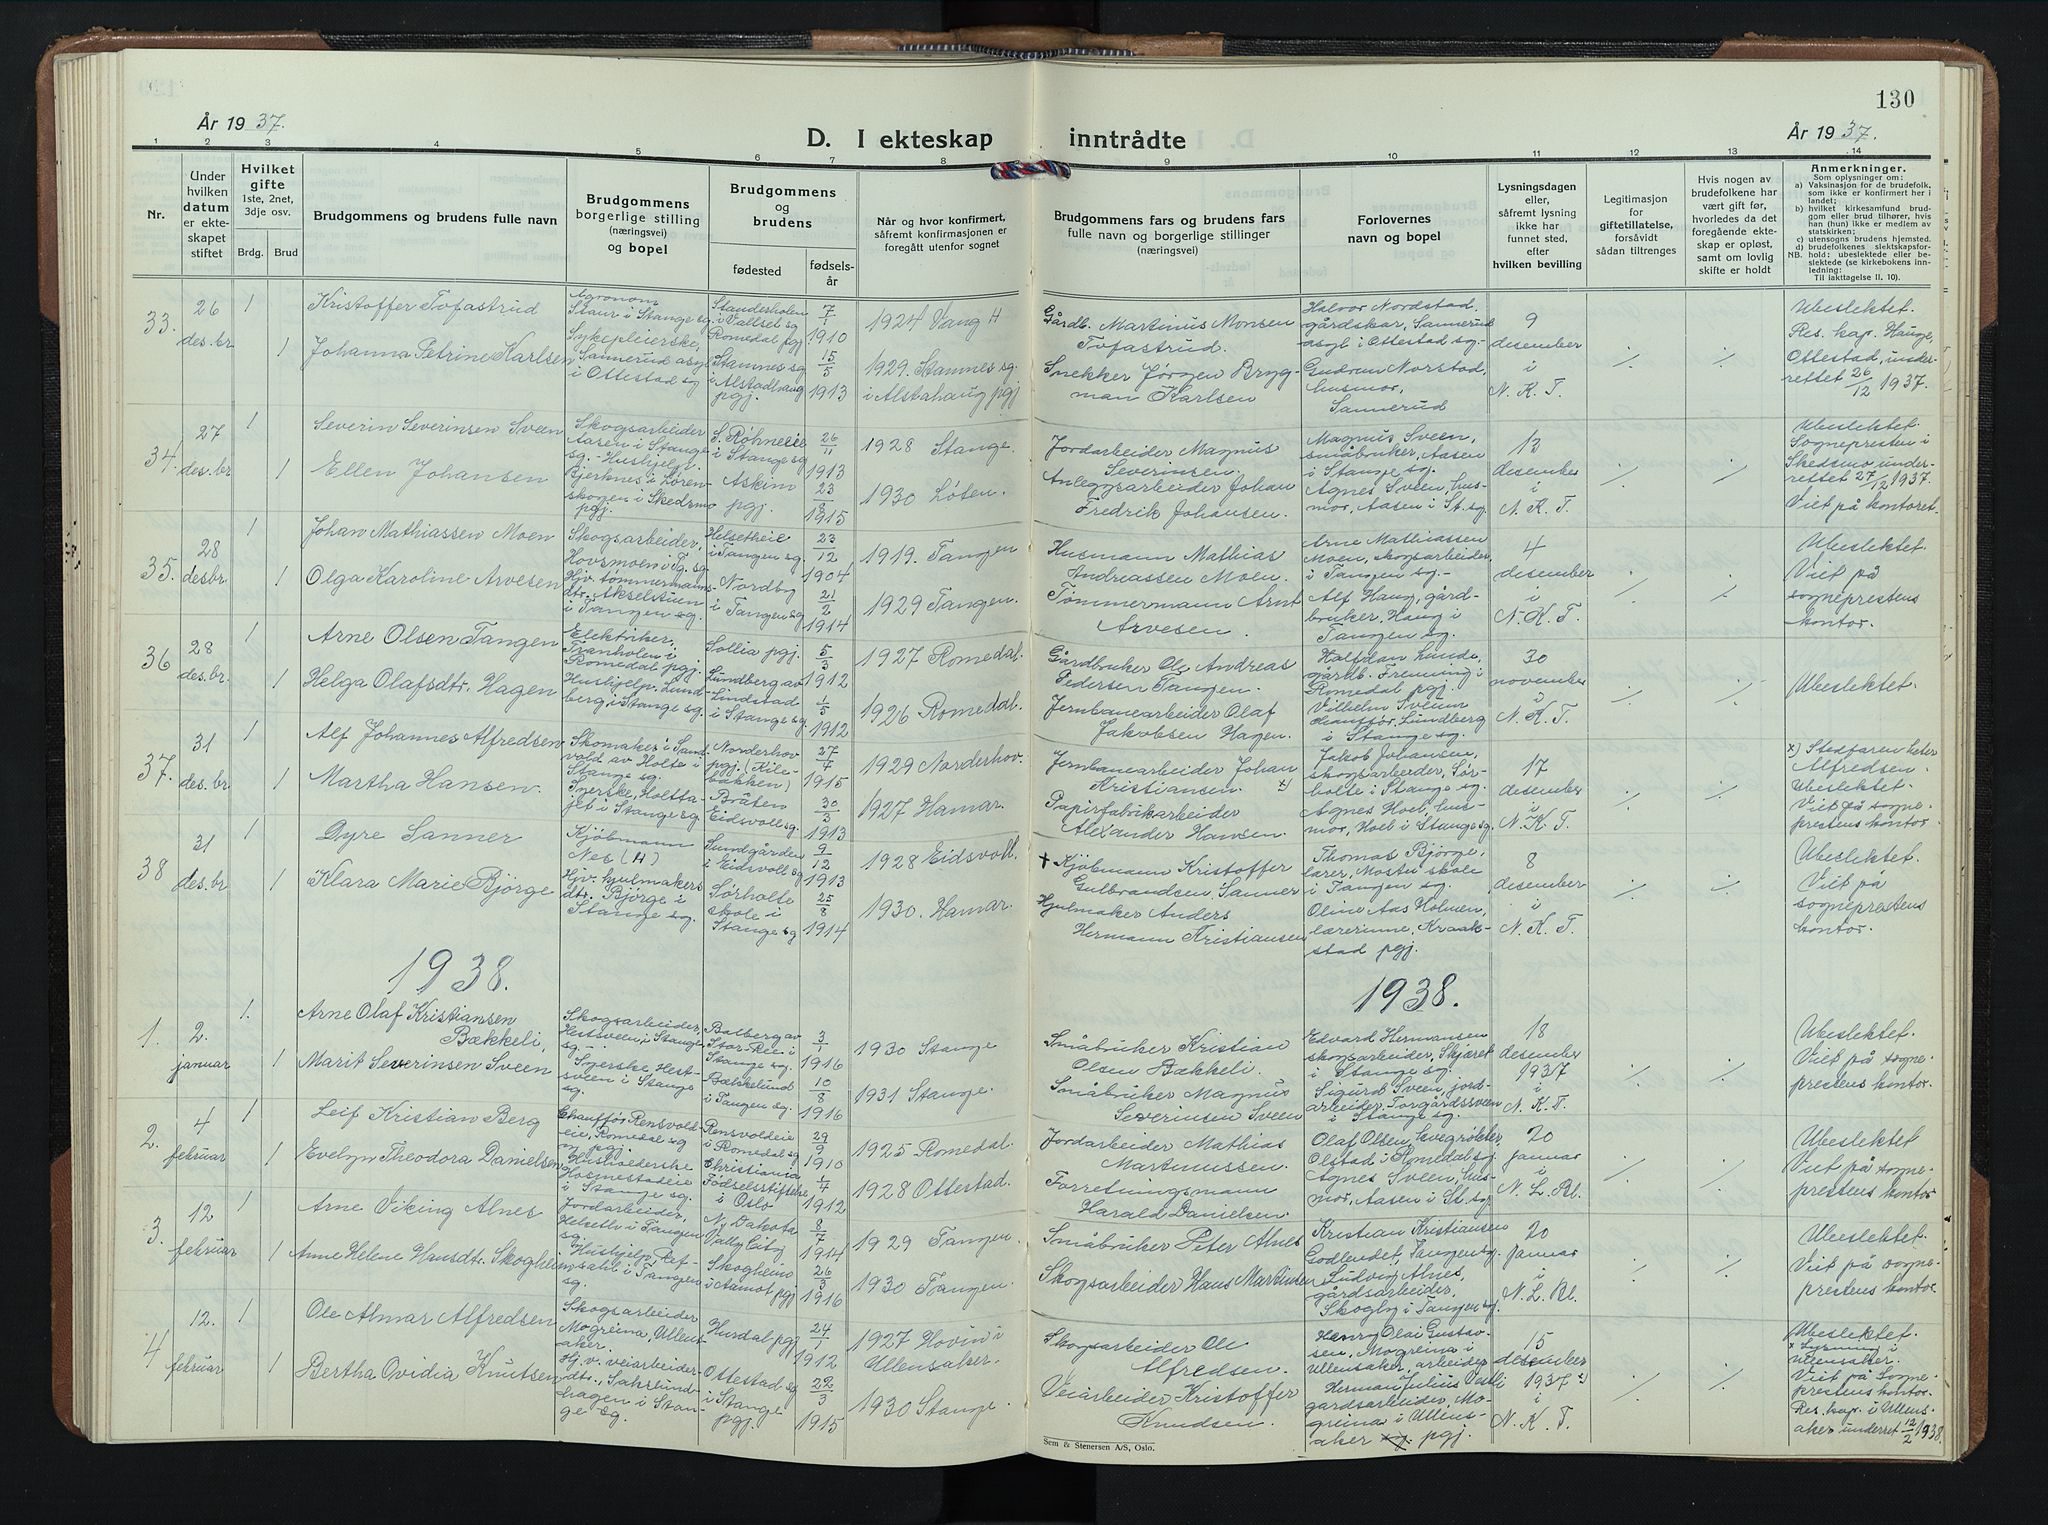 130
År 1937.
D. I ekteskap inntrådte
År 1937.
1 2 3 4 5 6 7 8 9 10 11 12 13 14
Nr.
Under
hvilken
datum
er ekte-
skapet
stiftet
Hvilket
gifte
1ste, 2net,
3dje osv.
Brdg. Brud
Brudgommens og brudens fulle navn
Brudgommens
borgerlige stilling
(næringsvei)
og bopel
Brudgommens
og
brudens
fødested
fødsels-
år
Når og hvor konfirmert,
såfremt konfirmasjonen er
foregått utenfor sognet
Brudgommens fars og brudens fars
fulle navn og borgerlige stillinger
(næringsvei)
Forlovernes
navn og bopel
Lysningsdagen
eller,
såfremt lysning
ikke har
funnet sted,
efter
hvilken bevilling
Legitimasjon
for
giftetillatelse,
forsåvidt
sådan tiltrenges
Hvis nogen av
brudefolkene har
vært gift før,
hvorledes da det
foregående ekte-
skap er opløst,
samt om lovlig
skifte er holdt
Anmerkninger.
Som oplysninger om:
a) Vaksinasjon for de brudefolk,
som ikke er konfirmert her i
landet;
b) hvilket kirkesamfund brud-
gom eller brud tilhører, hvis
han (hun) ikke er medlem av
statskirken;
c) utensogns brudens hjemsted.
d) brudefolkenes slektskapsfor-
NB. hold: ubeslektede eller be-
slektede (se kirkebokens inn-
ledning:
Til iakttagelse II. 10).
33.
26
des.br
1
1
Kristoffer Tofastrud
Johanna Petrine Karlsen
Agronom
Staur i Stange sg.
Sykepleierske,
Sannerud asyl
i Ottestad sg
Standerholen
i Vallset sg
Romedal pgj
Stamnes sg
i Alstadhaug
pgj.
7
1910
15
5
1913
1924 Vang H
1929. Stamnes sg.
i Alstahaug pgj
Gårdb. Martinus Monsen
Tofastrud.
Snekker Jørgen Bryg-
man Karlsen
Halvor Nordstad
gårdskar, Sannerud
asyl i Ottestad sg.
Gudrun Norstad,
husmor,
Sannerud
9
desember
i
N. K. T.
Ubeslektet.
Res. kap. Hauge,
Ottestad, under-
rettet 26/12 1937.
34.
27
des.br
1
1
Severin Severinsen Sveen
Ellen Johansen
Skogsarbeider
Aasen i Stange
sg. - Hushjelp.
Bjerknes i Løren-
skogen i Skedsmo
pgj.
S. Røhneeie
i Stange sg
Askim
pgj.
26
11
1913
23
8
1915
1928 Stange.
1930 Løten.
Jordarbeider Magnus
Severinsen.
Anleggsarbeider Johan
Fredrik Johansen.
Magnus Sveen,
småbruker, Aasen
i Stange sg.
Agnes Sveen, hus-
mor, Aasen i St. sg.
12
desember
i
N. K. T.
Ubeslektet.
Sognepresten i
Skedsmo under-
rettet 27/12 1937.
Viet på kontoret.
35.
28
desbr.
1
1
Johan Mathiassen Moen
Olga Karoline Arvesen
Skogsarbeider,
Hovsmoen i Tg. sg.
Hjv. tømmermanns
dtr. Akselstuen
i Tangen sg.
Helsetheie
i Tangen sg.
Nordby
i Tangen sg
23
12
1904
21
2
1914
1919. Tangen
1929 Tangen.
Husmann Mathias
Andreassen Moen.
Tømmermann Arnt
Arvesen.
Arne Mathiassen
Moen, skogsarbeider,
i Tangen sg.-
Alf Haug, gård-
bruker, Haug i
Tangen sg.
4
desember
i
N. K. T.
Ubeslektet.
Viet på
sogneprestens
kontor.
36
28
des.br.
1
1
Arne Olsen Tangen
Helga Olafsdtr. Hagen
Elektriker,
Tranholen i
Romedal pgj.
Hushjelp, Lund-
berg, i Stange sg.
Sollia pgj.
Lundberg av
Lindstad
i Stange sg.
5
3
1912
1
5
1912
1927 Romedal.
1926 Romedal.
Gårdbruker Ole Andreas
Pedersen Tangen.
Jernbanearbeider Olaf
Jakobsen Hagen.
Halfdan Lunde,
gårdb. Frenning i
Romedal pgj.
Vilhelm Sveum
chauffør, Lundberg
i Stange sg.
30
november
i
N. K. T.
Ubeslektet.
37.
31
des.br
1
1
Alf Johannes Alfredsen
Martha Hansen.
Skomaker i Sand-
vold av Holte i
Stange sg.
Syerske, Holtta-
jet i Stange sg
Norderhov
pgj. (Kile-
bakken)
Bråten
Eidsvoll sg.
27
7
1915
30
3
1913
1929 Norderhov.
1927 Hamar.
Jernbanearbeider Johan
Kristiansen. x)
Papirfabrikarbeider
Alexander Hansen.
Jakob Johansen,
skogsarbeider, Sør-
holte i Stange sg.
Agnes Hoel, hus-
mor, Hoel i Stange sg.
17
desember
i
N. K. T.
x) Stedfaren heter
Alfredsen.
Ubeslektet.
Viet på sogne-
prestens kontor.
38
31
des.br
1
1
Dyre Sanner
Klara Marie Bjørge
Kjøbmann
Nes (H)
Hjv. hjulmakers
dtr. Bjørge i
Stange sg.
Sundgården
i Eidsvoll sg
Sørholte
skole i
Stange sg
9
12
1913
25
8
1914
1928 Eidsvoll.
1930. Hamar.
+ Kjøbmann Kristoffer
Gulbrandsen Sanner
Hjulmaker Anders
Hermann Kristiansen
Thomas Bjørge,
lærer, Mostu skole
i Tangen sg.
Oline Aas Holmen,
lærerinne, Kraak-
stad pgj.
8
desember
i
N. K. T.
Ubeslektet.
Viet på
sogneprestens
kontor.
1938.
1938.
1.
2.
januar
1.
1
Arne Olaf Kristiansen
Bækkeli,
Marit Severinsen Sveen
Skogsarbeider,
Hestsveen i Stange
sg. -
Syerske Hest-
sveen i Stange
sg.
Balberg av
Stor-Ree i
Stange sg.
Bækkelund
i Tangen sg.
3
1
1916
10
8
1916
1930 Stange
1931 Stange.
Småbruker Kristian
Olsen Bækkeli.
Småbruker Magnus
Severinsen Sveen
Edvard Hermansen
skogsarbeider, Skjæret
i Stange sg.
Sigurd Sveen, jord-
arbeider. Torgårdssveen
i Stange sg.
18
desember
1937
i
N. K. T.
Ubeslektet.
Viet på sogne-
prestens kontor.
2.
4
februar
1
1
Leif Kristian Berg
Evelyn Theodora Danielsen
Chauffør, Rensvold-
eie, Romedal sg
pgj.
Husholderske
Hosmestadeie
i Stange sg.
Rensvoldeie
i Romedal sg
Christiania
Fødselsstiftelse
i Oslo
29
9
1910
1
4
1912
1925 Romedal.
1928 Ottestad.
Jordarbeider Mathias
Martinussen.
Forretningsmann
Harald Danielsen.
Olaf Olsen,
Olstad i Romedal sg.
Agnes Sveen, hus-
mor, Aasen i St. sg.
20
januar
i
N. L. Bl.
Ubeslektet
Viet på sogne-
prestens kontor.
3.
12
februar
1
1
Arne Viking Alnes
Anne Helene Hansdtr. Skogheim
Jordarbeider,
Helsetlv i Tangen
sg.
Hushjelp, Ref-
sahl i Tangen
sg.
Ny Dakota
Vally City
Skogheim
i Aamot pgj
8
7
1914
26
3
1916
1929 Tangen.
1930 Tangen.
Småbruker Peter Alnes
Skogsarbeider Hans Martinsen
Kristian Kristiansen
Godlendet, Tangen sg.
Ludvig Alnes,
gårdsarbeider,
Skogly i Tangen sg.
20
januar
i
N. L. Bl.
Ubeslektet.
Viet på sogne-
prestens kontor.
4
12.
februar
1
1
Ole Almar Alfredsen
Bertha Ovidia Knutsen
Skogsarbeider
Mogreina, Ullens-
aker.
Hj.v. veiarbeider-
dtr., Sakslund-
hagen i Stan-
ge sg.
Hurdal pgj
Ottestad sg
i Stange
pgj.
24
1
1912
22
3
1915
1927 Hovin i
Ullensaker.
1930 Stange.
Skogsarbeider Ole
Alfredsen.
Veiarbeider Kristoffer
Knudsen.
Henry Olai Gustav-
sen, Mogreina i
Ullensaker, arbeider
Herman Julius
gårdsarbeider, Mo-
greina i Ullens-
aker pgj.
15
desember
1937 x)
i
N. K. T.
Ubeslektet.
x Lysning i
Ullensaker.
Viet på Sogne-
prestens kontor.
Res. kap. i Ullens-
aker underret 12/2 1938.
Sem & Stenersen A/S, Oslo.